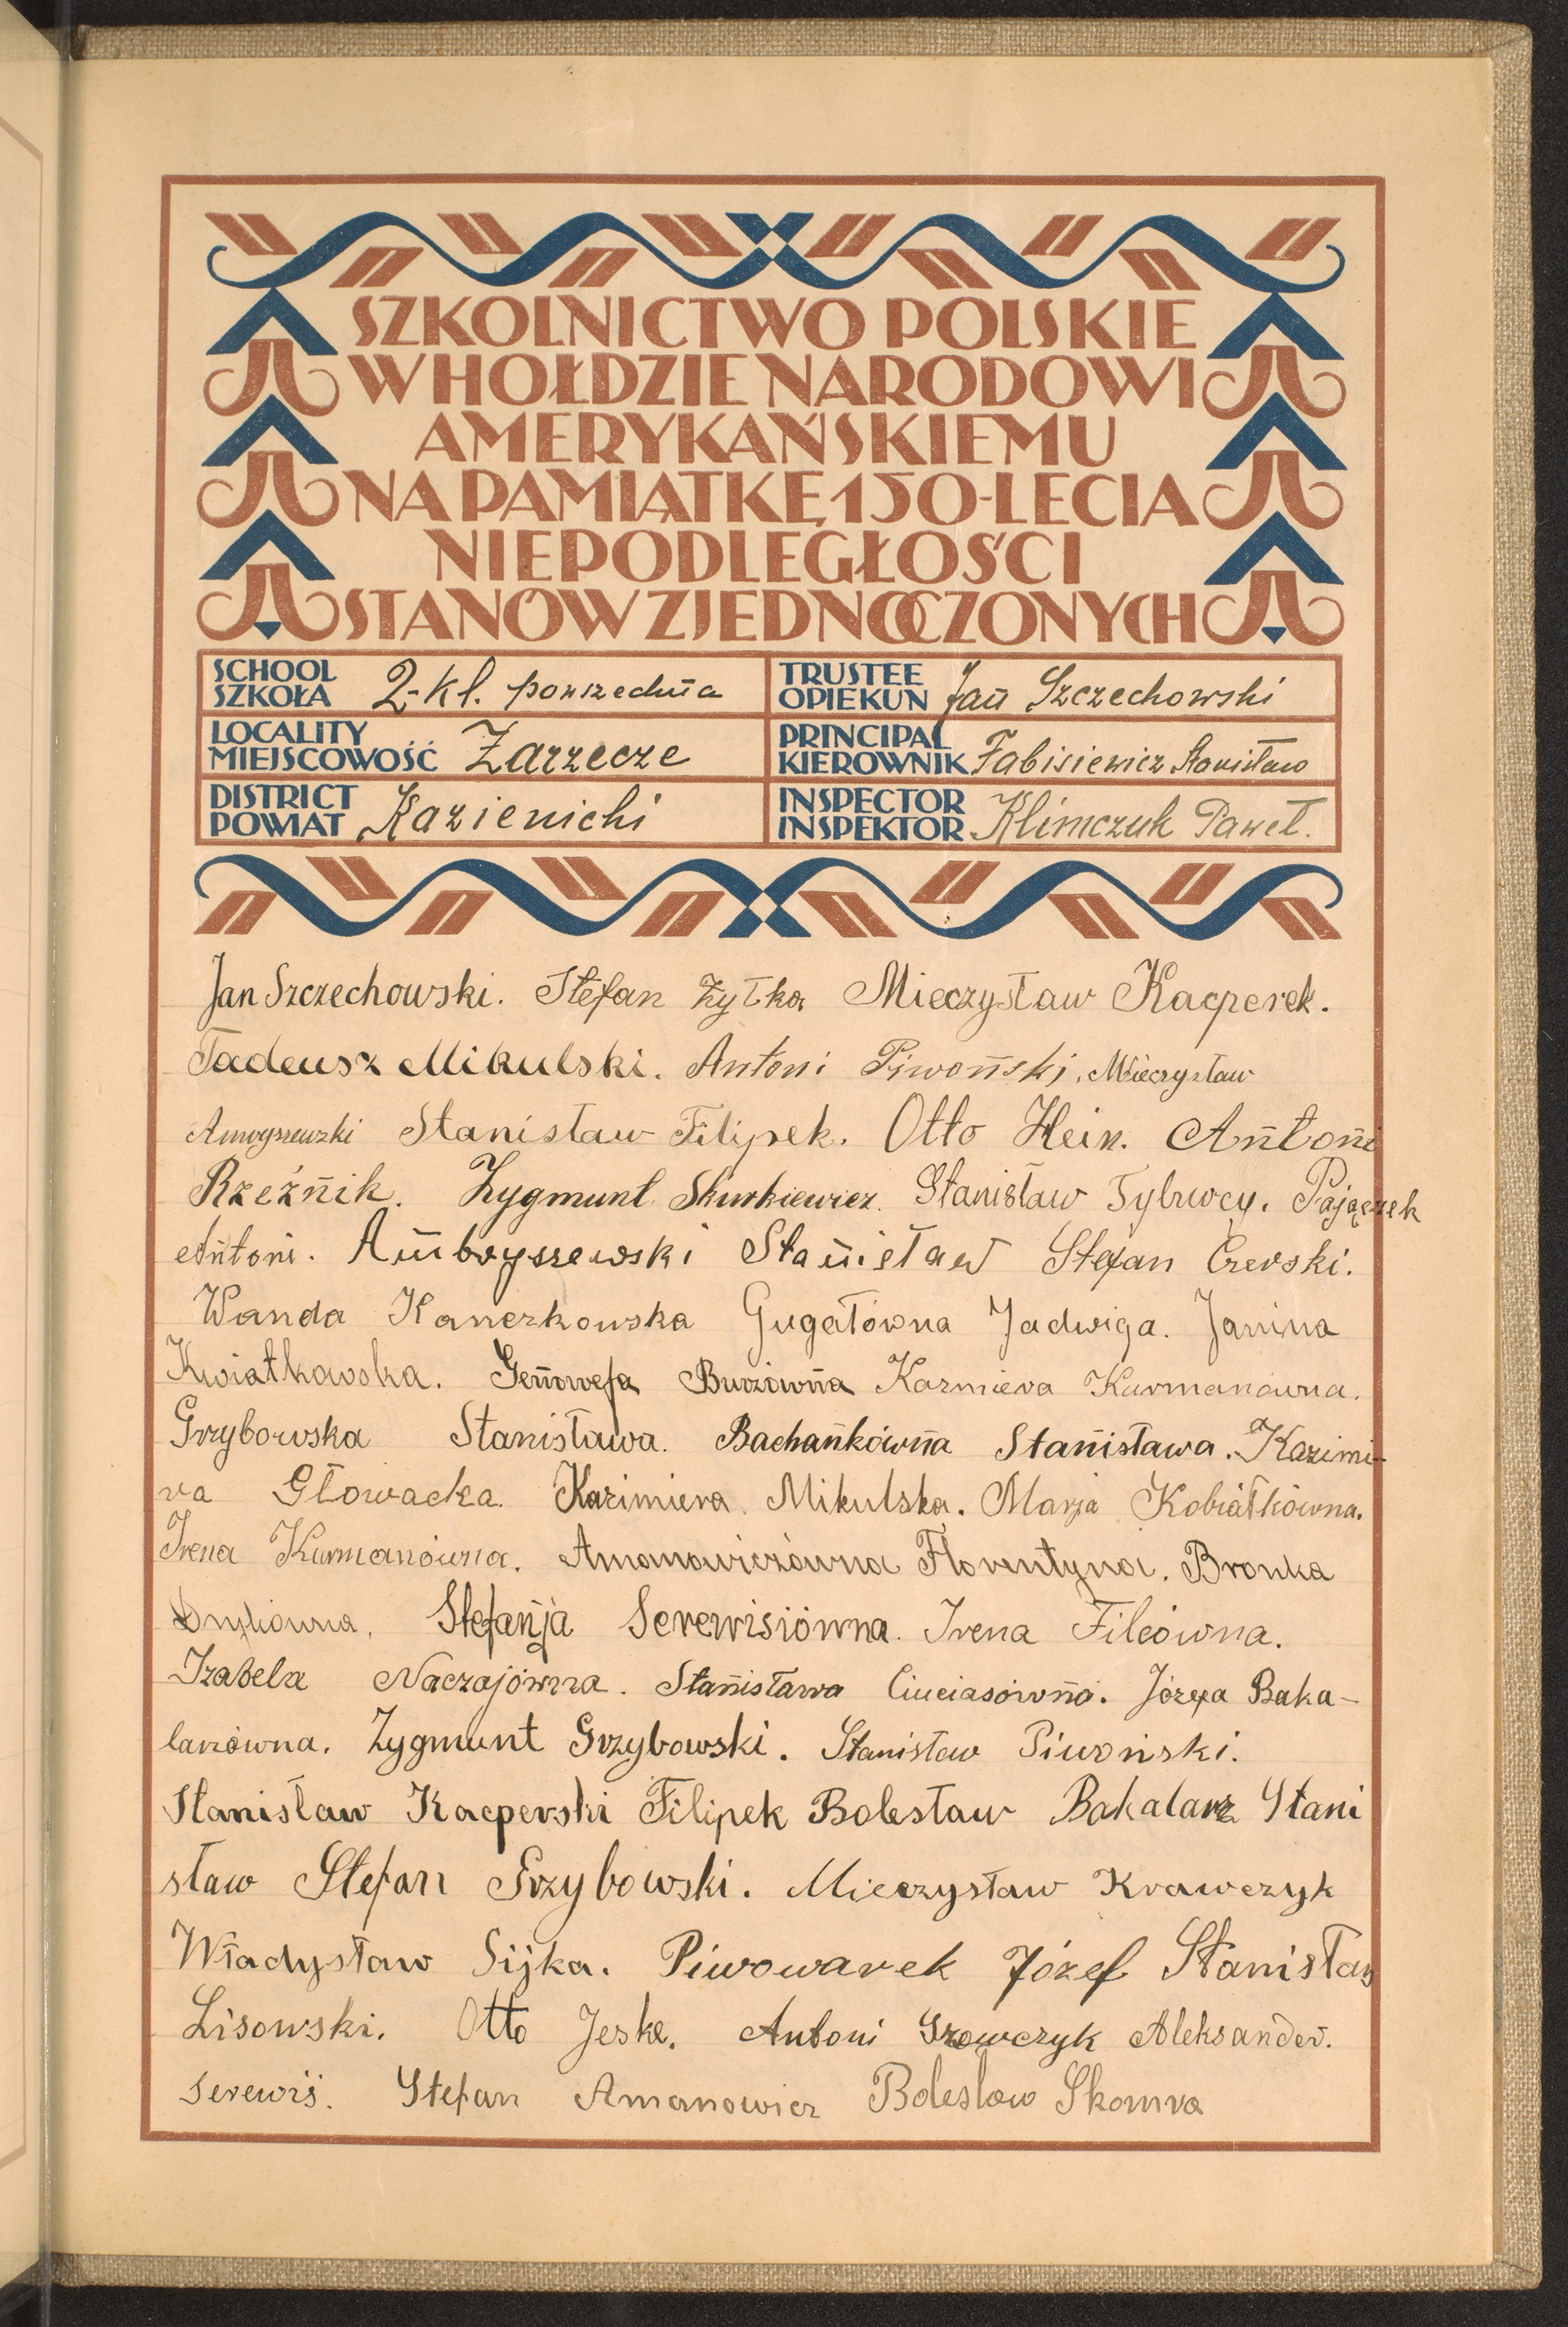 SZKOLNICTWO POLSKIE
W HOŁDZIE NARODOWI
AMERYKAŃSKIEMU
NA PAMIĄTKĘ 150-LECIA
NIEPODLEGŁOŚCI
STANÓW ZJEDNOCZONYCH
SCHOOL
SZKOŁA 2-kl. powszechna
TRUSTEE
OPIEKUN Jan Szczechowski
LOCALITY
MIEJSCOWOŚĆ Zarzecze
PRINCIPAL
KIEROWNIK Fabisiewicz Stanisław
DISTRICT
POWIAT Kozienicki
INSPECTOR
INSPEKTOR Klimczuk Paweł.
Jan Szczechowski. Stefan Żyłka Mieczysław Kacperek.
Tadeusz Mikulski. Antoni Piwoński. Mieczysław
Stanisław Filipek. Otto Hein. Antoni
Rzeźnik. Zygmunt Skurkiewicz. Stanisław Pajączek
Antoni. Ambryszewski Stanisław Stefan Czerski.
Wanda Kanczkowska Gugałówna Jadwiga. Janina
Kwiatkowska. Genowefa Burzówna Kazmiera Kurmanówna.
Grzybowska Stanisława. Bachańkówna Stanisława. Kazimi-
ra Głowacka. Kazimiera Mikulska. Marja Kobiałkówna.
Irena Kurmanówna. Amanowiczówna Florentyna. Bronka
Stefanja Serewisiówna. Irena Filcówna.
Izabela Naczajówna. Stanisława Ciuciasówna. Józefa Baka-
larzówna. Zygmunt Grzybowski. Stanisław Piwoński.
Stanisław Kacperski Filipek Bolesław Bakalarz Stani
sław Stefan Grzybowski. Mieczysław Krawczyk
Władysław Sijka. Piwowarek Józef Stanisław
Lisowski. Otto Jeske. Antoni Aleksander.
Serewiś. Stefan Amanowicz Bolesław Skomra